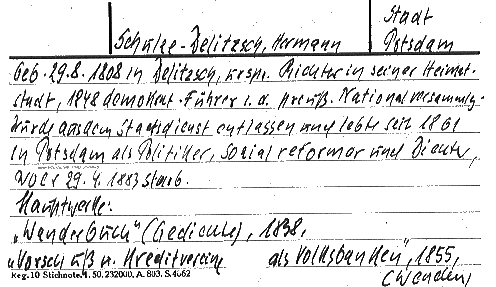 Stadt
Schulze-Delitzsch, Hermann Potsdam
Geb. 29.8.1808 in Delitzsch, urspr. Richter in seiner Heimat-
stadt, 1848 demokrat. Führer i. d. preuß. Nationalversammlg.
wurde aus dem Staatsdienst entlassen und lebte seit 1861
in Potsdam als Politiker, Sozialreformer und Dichter,
wo er 29.4.1883 starb.
Hauptwerke:
„Wanderbuch" (Gedichte), 1838,
„Vorschuß u. Kreditvereine als Volksbanken", 1855,
Reg. 10 Stichnote. 1. 50. 232000. A. 803. S. 4062
(wenden)